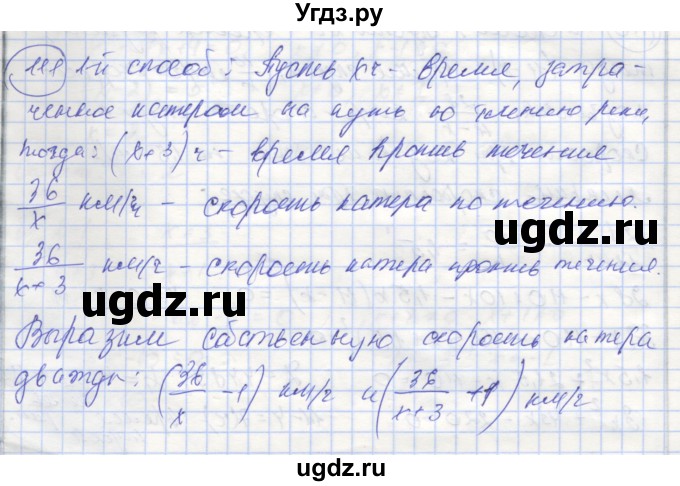 Угдз.ру
111 1-й способ: Пусть x ч - время, затра-
ченное катером на путь по течению реки,
тогда: (x+3) ч - время против течения
36/x км/ч - скорость катера по течению.
ugdz.ru
36/(x+3) км/ч - скорость катера против течения.
ugdz.ru
Выразим собственную скорость катера
дважды: (36/x - 1) км/ч и (36/(x+3) + 1) км/ч
ugdz.ru
ugdz.ru